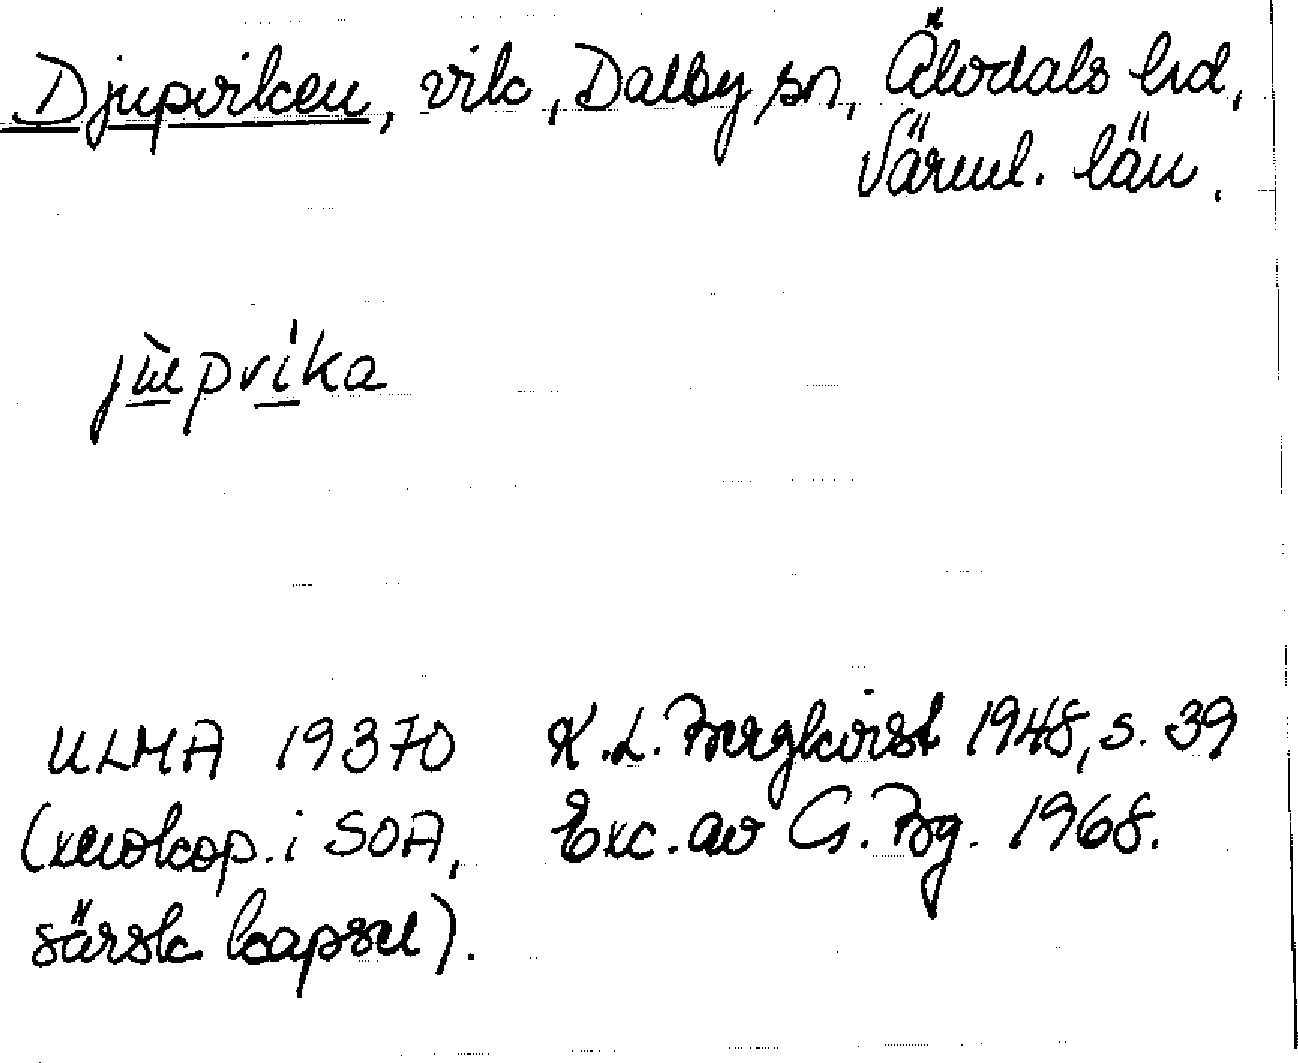 Djupviken, vik, Dalby sn, Älvdals hrd,
Värml. län.
jʉ̀pvíka
ULMA 19370 K.L. Bergkvist 1948, s. 39
(xerokop. i SOA, Exc. av G. Bg. 1968.
särsk kapsel).